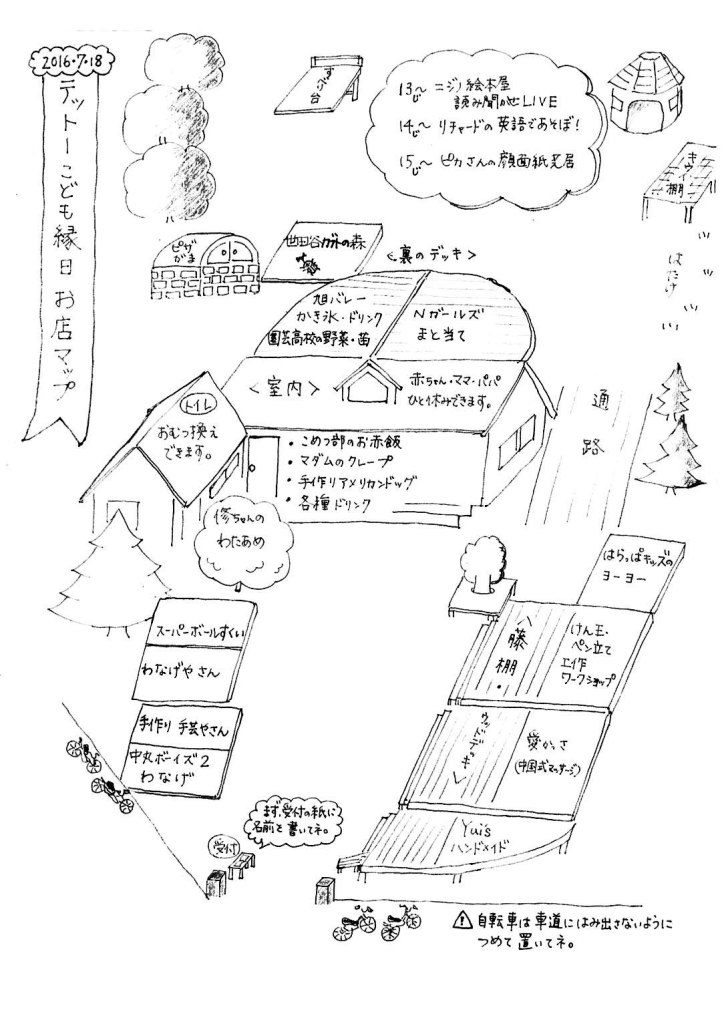 2016・7・18
テットーこども縁日 お店マップ
すべり台
13じ〜 ニジノ絵本屋
読み聞かせLIVE
14じ〜 リチャードの英語であそぼ!
15じ〜 ピカさんの顔面紙芝居
キウイ棚
はたけ
ピザ
がま
世田谷ガトの森
<裏のデッキ>
旭バレー
かき氷・ドリンク
園芸高校の野菜・苗
Nガールズ
まと当て
<室内>
赤ちゃん・ママ・パパ
ひと休みできます。
通路
トイレ
おむつ換え
できます。
・こめつ部のお赤飯
・マダムのクレープ
・手作りアメリカンドッグ
・各種ドリンク
修ちゃんの
わたあめ
はらっぱキッズの
ヨーヨー
スーパーボールすくい
わなげやさん
八藤棚・
けん玉・
ペン立て
工作
ワークショップ
手作り 手芸やさん
中丸ボーイズ2
わなげ
ウッドデッキ
愛かっさ
(中国式マッサージ)
まず、受付の紙に
名前を書いてネ。
受付
Yui's
ハンドメイド
自転車は車道にはみ出さないように
つめて置いてネ。